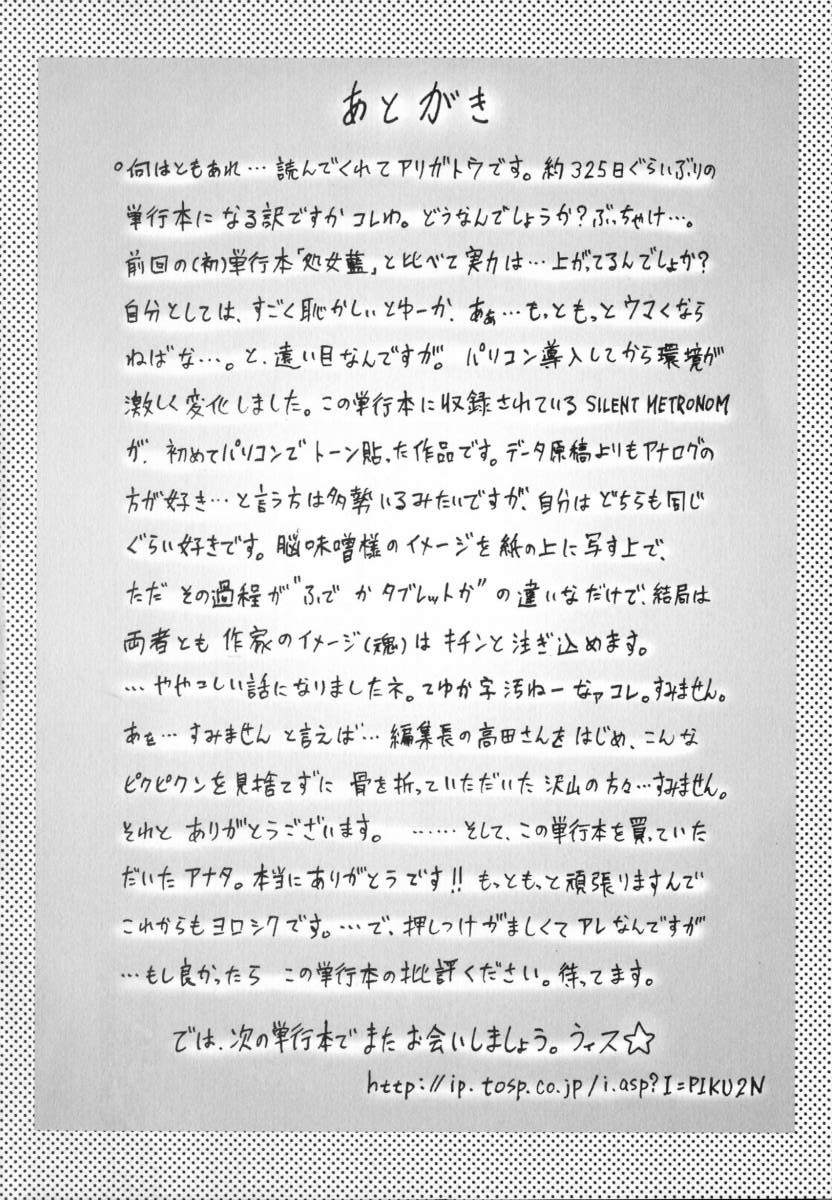 あとがき
○何はともあれ…読んでくれてアリガトウです。約325日ぐらいぶりの
単行本になる訳ですかコレわ。どうなんでしょうか?ぶっちゃけ…。
前回の(初)単行本「処女藍」と比べて実力は…上がってるんでしょか?
自分としては、すごく恥かしいとゆーか、あぁ…もっともっとウマくなら
ねばな…。と、遠い目なんですが。パソコン導入してから環境が
激しく変化しました。この単行本に収録されているSILENT METRONOM
が、初めてパソコンでトーン貼った作品です。データ原稿よりもアナログの
方が好き…と言う方は多勢いるみたいですが、自分はどちらも同じ
ぐらい好きです。脳味噌様のイメージを紙の上に写す上で、
ただ その過程が"ふでかタブレットか"の違いなだけで、結局は
両者とも 作家のイメージ(魂)はキチンと注ぎ込めます。
…ややこしい話になりましたネ。てゆか字汚ねーなァコレ。すみません。
あぁ…すみませんと言えば…編集長の高田さんをはじめ、こんな
ピクピクンを見捨てずに 骨を折っていただいた沢山の方々…すみません。
それと ありがとうございます。 ……そして、この単行本を買っていた
だいたアナタ。本当にありがとうです!! もっともっと頑張りますんで
これからもヨロシクです。…で、押しつけがましくてアレなんですが
…もし良かったら この単行本の批評ください。待ってます。
では、次の単行本でまたお会いしましょう。ウィス☆
http://ip.tosp.co.jp/i.asp?I=PIKU2N